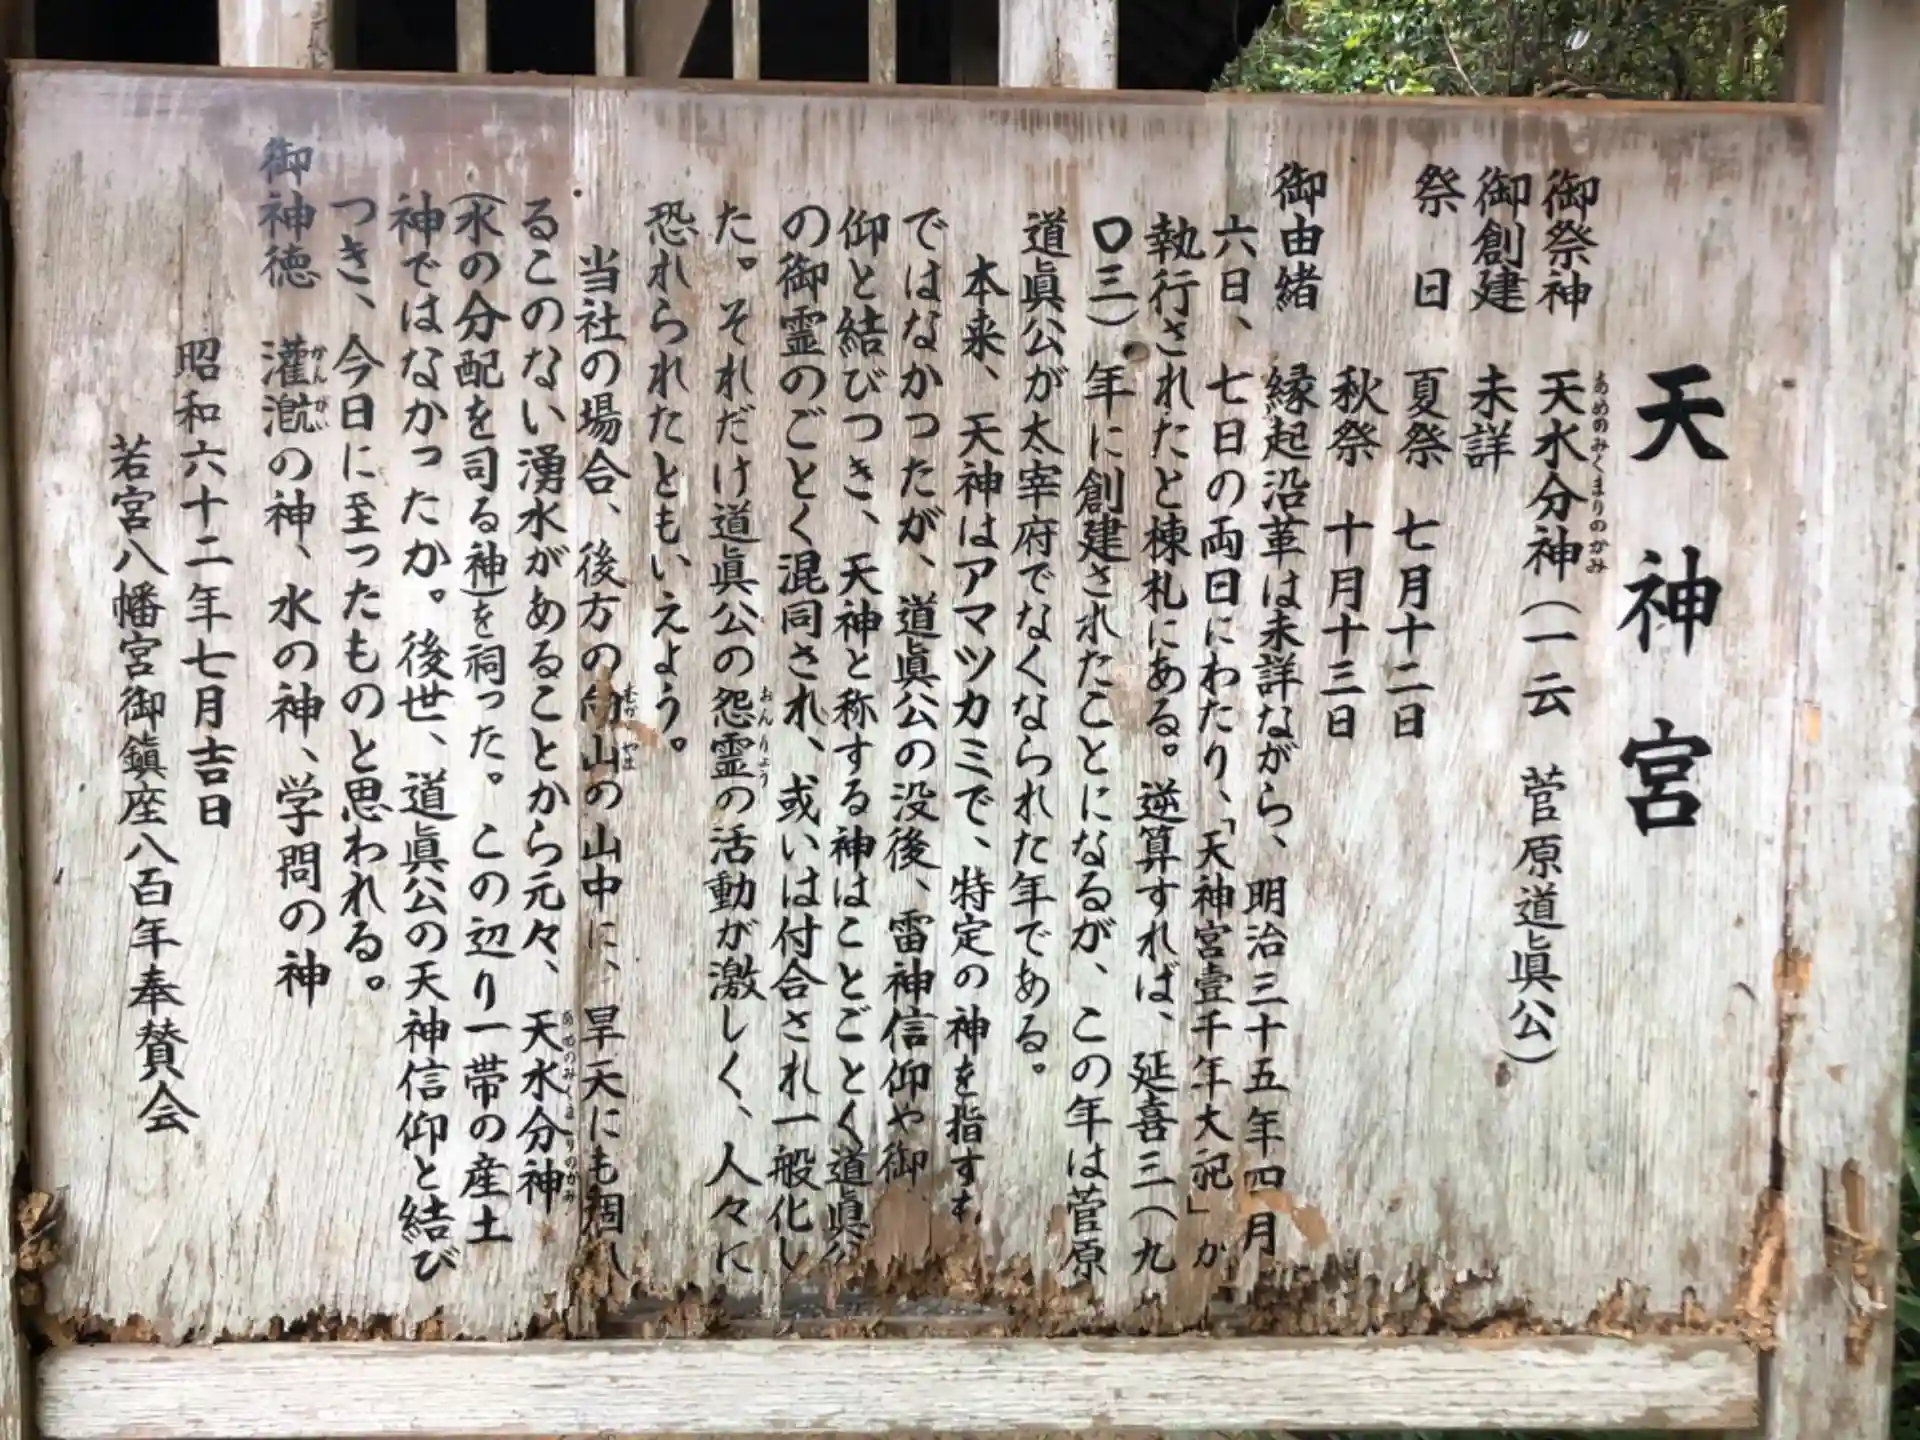 天神宮
御祭神　天水分神（一云　菅原道眞公）
あめのみくまりのかみ
御創建　未詳
祭　日　夏祭　七月十二日
秋祭　十月十三日
御由緒　縁起沿革は未詳ながら、明治三十五年四月
六日、七日の両日にわたり、「天神宮壹千年大祀」が
執行されたと棟札にある。逆算すれば、延喜三（九
〇三）年に創建されたことになるが、この年は菅原
道眞公が太宰府でなくなられた年である。
本来、天神はアマツカミで、特定の神を指すも
ではなかつたが、道眞公の没後、雷神信仰や御
仰と結びつき、天神と称する神はことごとく道眞公
の御霊のごとく混同され、或いは付合され一般化し
た。それだけ道眞公の怨霊の活動が激しく、人々に
おんりょう
恐れられたともいえよう。
当社の場合、後方の向山の山中に、旱天にも涸れ
むかやま
ることのない湧水があることから元々、天水分神
あめのみくまりのかみ
（水の分配を司る神）を祠った。この辺り一帯の産土
神ではなかったか。後世、道眞公の天神信仰と結び
つき、今日に至ったものと思われる。
御神徳　灌漑の神、水の神、学問の神
かんがい
昭和六十二年七月吉日
若宮八幡宮御鎮座八百年奉賛会